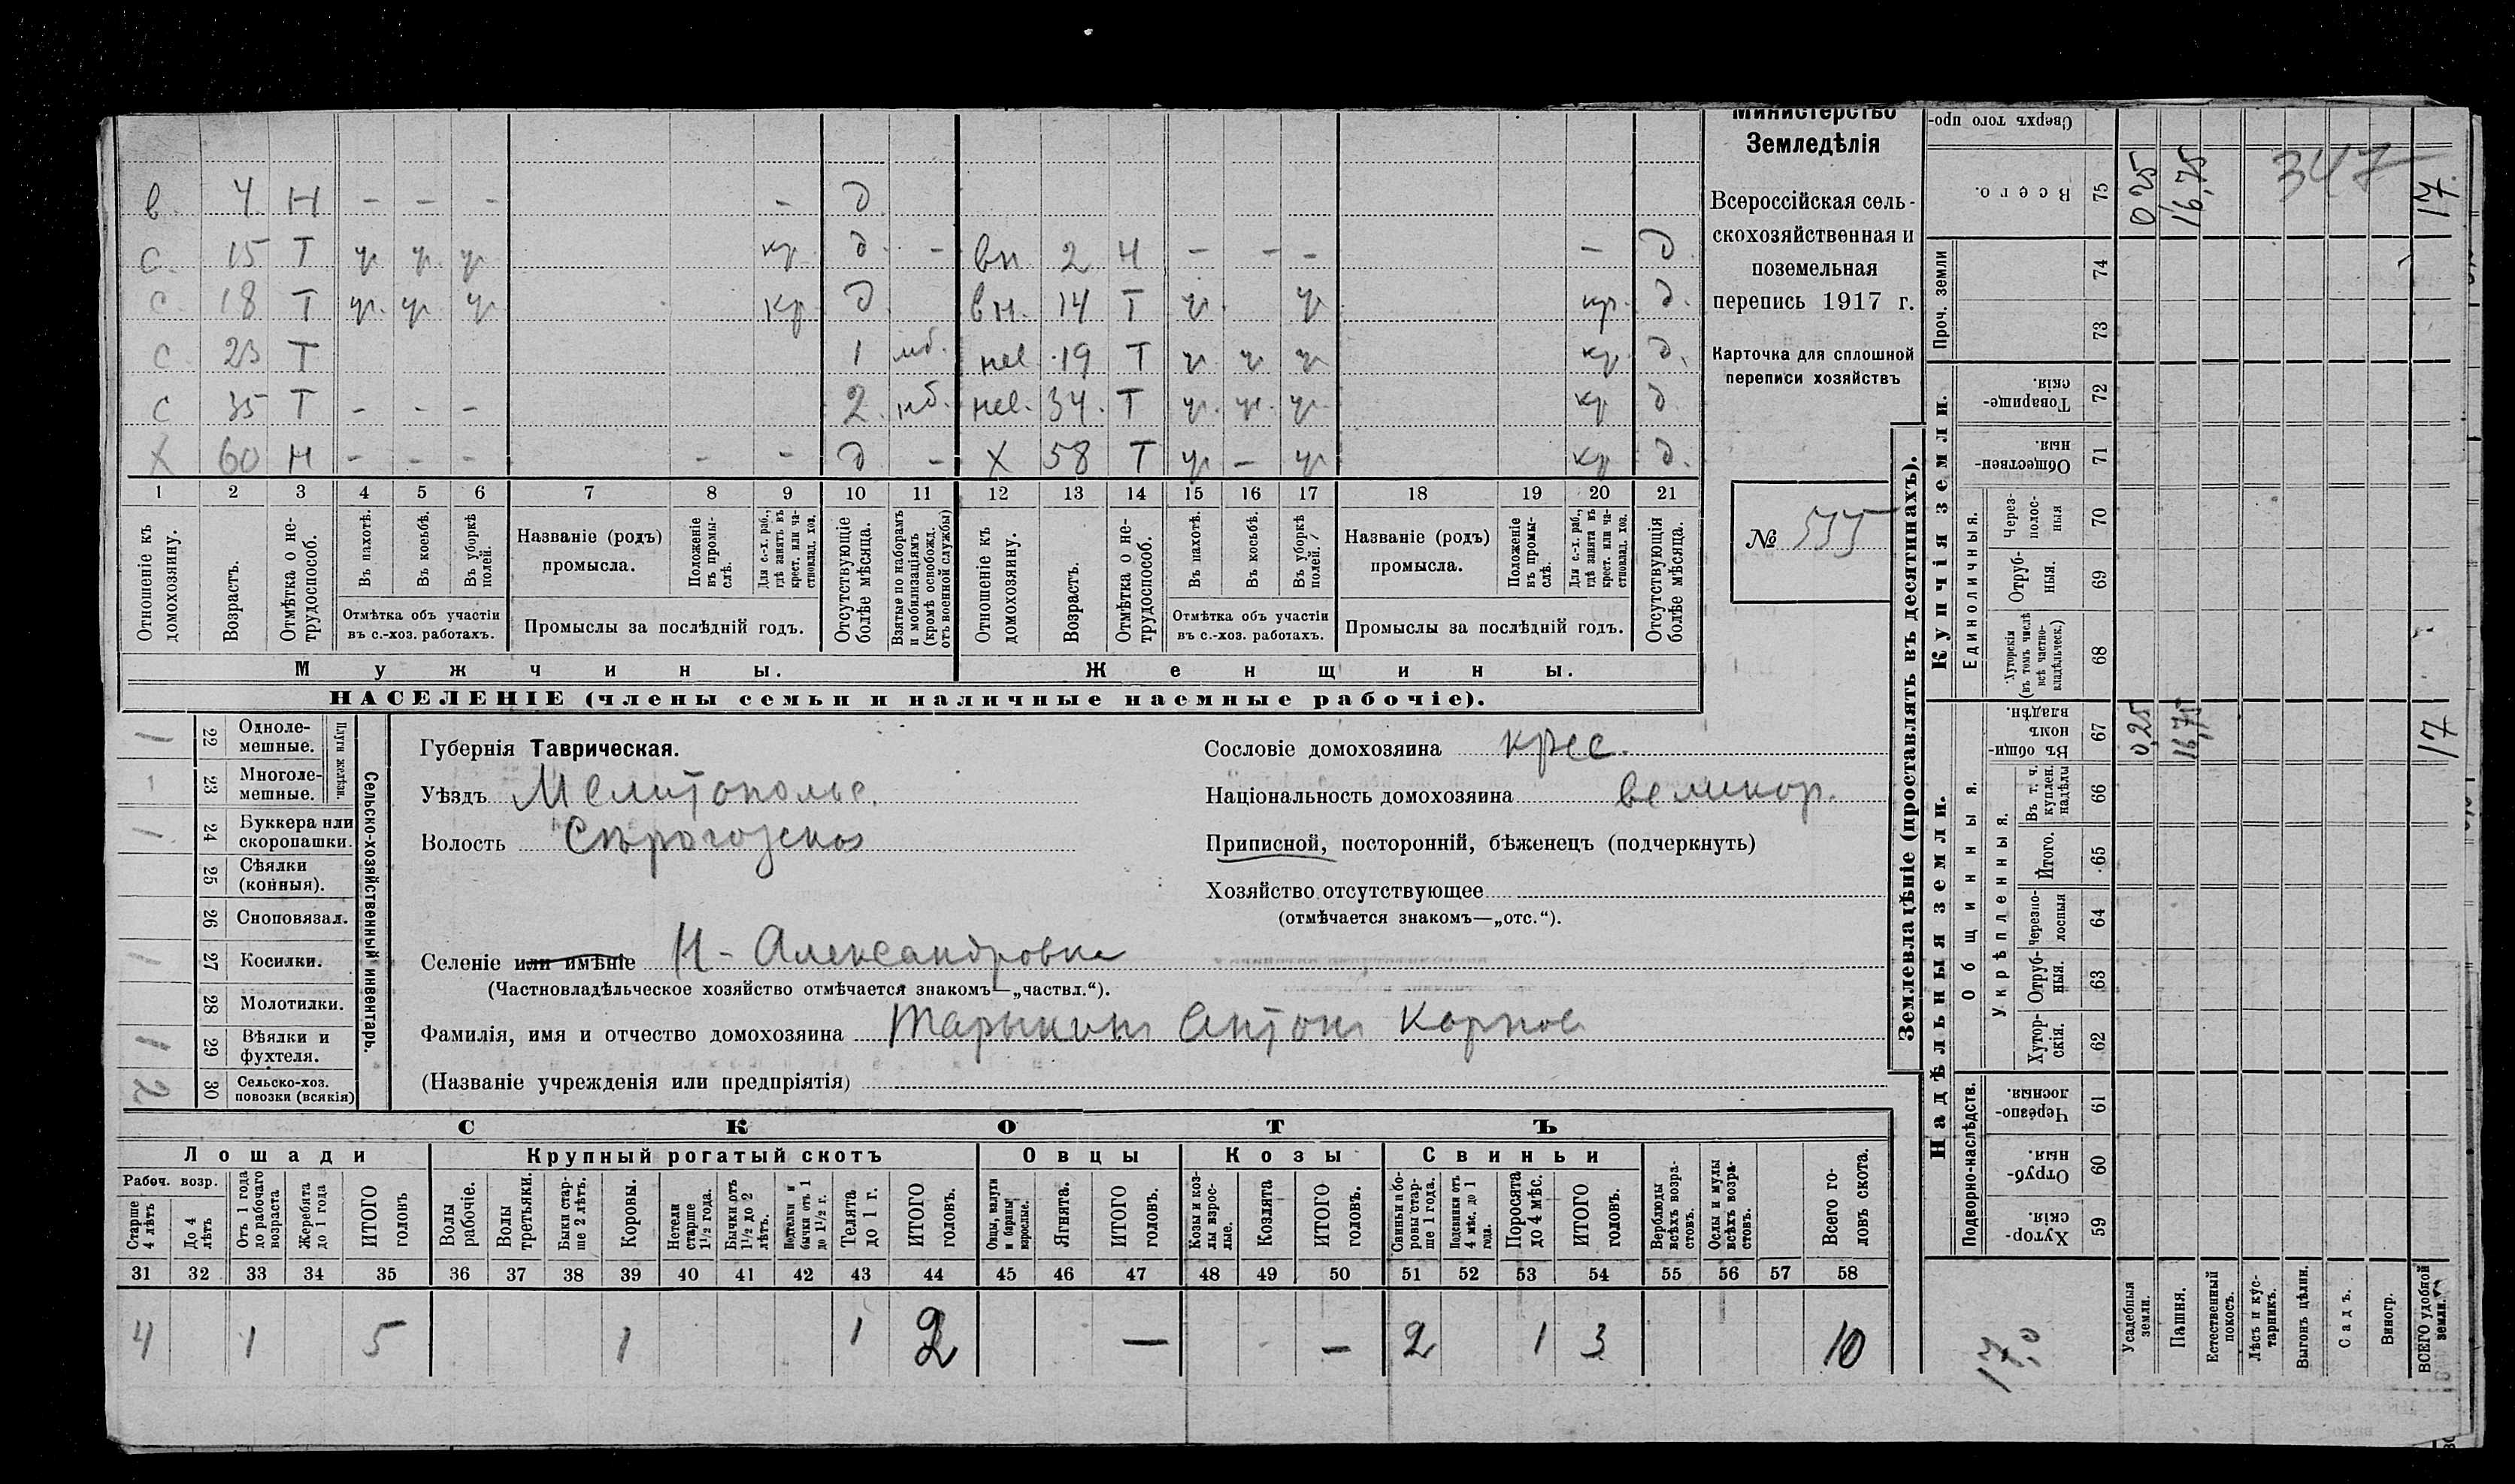 в. 4. Н - - - - д
с. 15 Т ч. ч. ч. кр. д. - вн. 2 Н - - - - д
с. 18 Т ч. ч. ч. кр. д вн. 14 Т ч. ч. кр. д.
с 23 Т 1 мб. нев. 19 Т ч. ч. ч. кр. д.
с 35 Т - - - 2. мб. нев. 34. Т ч. ч. ч. кр д
Х 60 Н - - - - - д - Х 58 Т ч. - ч. кр д.
1 2 3 4 5 6 7 8 9 10 11 12 13 14 15 16 17 18 19 20 21
Отношеніе къ домохозяину.
Возрастъ.
Отмѣтка о не-трудоспособ.
Въ пахотѣ.
Въ косьбѣ.
Въ уборкѣ полей.
Отмѣтка объ участіи
въ с.-хоз. работахъ.
Названіе (родъ)
промысла.
Положеніе въ промы-слѣ.
Для с.-х. раб., гдѣ занятъ въ крест. или ча-стновлад. хоз.
Промыслы за послѣдній годъ.
Отсутствующіе болѣе мѣсяца.
Взятые по наборамъ и мобилизаціямъ (кромѣ освобожд. отъ военной службы)
Отношеніе къ домохозяину.
Возрастъ.
Отмѣтка о не-трудоспособ.
Въ пахотѣ.
Въ косьбѣ.
Въ уборкѣ полей.
Отмѣтка объ участіи
въ с.-хоз. работахъ.
Названіе (родъ)
промысла.
Положеніе въ промы-слѣ.
Для с.-х. раб., гдѣ занята въ крест. или ча-стновлад. хоз.
Промыслы за послѣдній годъ.
Отсутствующія болѣе мѣсяца.
Мужчины.
Женщины.
НАСЕЛЕНІЕ (члены семьи и наличные наемные рабочіе).
Министерство
Земледѣлія
Всероссійская сель-
скохозяйственная и
поземельная
перепись 1917 г.
Карточка для сплошной
переписи хозяйствъ
№ 555
1 22 Одноле-мешные.
1 23 Многоле-мешные.
Плуги желѣзн.
1 24 Буккера или скоропашки.
25 Сѣялки (конныя).
26 Сноповязал.
1 27 Косилки.
28 Молотилки.
1 29 Вѣялки и фухтеля.
2 30 Сельско-хоз. повозки (всякія)
Сельско-хозяйственный инвентарь.
Губернія Таврическая.
Уѣздъ Мелитопольс.
Волость Сѣрогозская
Селеніе или имѣніе Н-Александровка
(Частновладѣльческое хозяйство отмѣчается знакомъ—„частвл.“).
Фамилія, имя и отчество домохозяина Тарыкинъ Антонъ Карпов
(Названіе учрежденія или предпріятія)
Сословіе домохозяина крес.
Національность домохозяина великор.
Приписной, посторонній, бѣженецъ (подчеркнуть)
Хозяйство отсутствующее
(отмѣчается знакомъ—„отс.“).
СКОТЪ
Лошади
Крупный рогатый скотъ
Овцы
Козы
Свиньи
Рабоч. возр.
Старше 4 лѣтъ
До 4 лѣтъ
Отъ 1 года до рабочаго возраста
Жеребята до 1 года
ИТОГО головъ
Волы рабочіе.
Волы третьяки.
Быки стар-ше 2 лѣтъ.
Коровы.
Нетели старше 1 1/2 года.
Бычки отъ 1 1/2 до 2 лѣтъ.
Подтелки и бычки отъ 1 до 1 1/2 г.
Телята до 1 г.
ИТОГО головъ.
Овцы, валухи и бараны взрослые.
Ягнята.
ИТОГО головъ.
Козы и коз-лы взрос-лые.
Козлята
ИТОГО головъ.
Свиньи и бо-ровы стар-ше 1 года.
Подсвинки отъ 4 мѣс. до 1 года.
Поросята до 4 мѣс.
ИТОГО головъ.
Верблюды всѣхъ возра-стовъ.
Ослы и мулы всѣхъ возра-стовъ.
Всего го-ловъ скота.
31 32 33 34 35 36 37 38 39 40 41 42 43 44 45 46 47 48 49 50 51 52 53 54 55 56 57 58
4 1 5 1 1 2 — - — 2 1 3 10
Землевладѣніе (проставлять въ десятинахъ).
Сверхъ того про-
Всего. 75 0 25 16,75 347 17.
Проч. земли
74
73
Купчія земли.
Товарище-скія. 72
Обществен-ныя. 71
Единоличныя.
Через-полос-ныя 70
Отруб-ныя. 69
Хуторскія (въ томъ числѣ всѣ частно-владѣльческ.) 68
Надѣльныя земли.
Общинныя.
Въ общи-номъ владѣн. 67 0,25 16,75 17
Укрѣпленныя.
Въ т. ч. куплен. надѣлы 66
Итого. 65
черезпо-лосныя 64
Отруб-ныя. 63
Хутор-скія. 62
Подворно-наслѣдств.
Черезпо-лосныя. 61
Отруб-ныя. 60
Хутор-скія. 59
17,0
Усадебныя земли.
Пашня.
Естественный покосъ.
Лѣсъ и кус-тарникъ.
Выгонъ цѣлин.
Садъ.
Виногр.
ВСЕГО удобной земли.